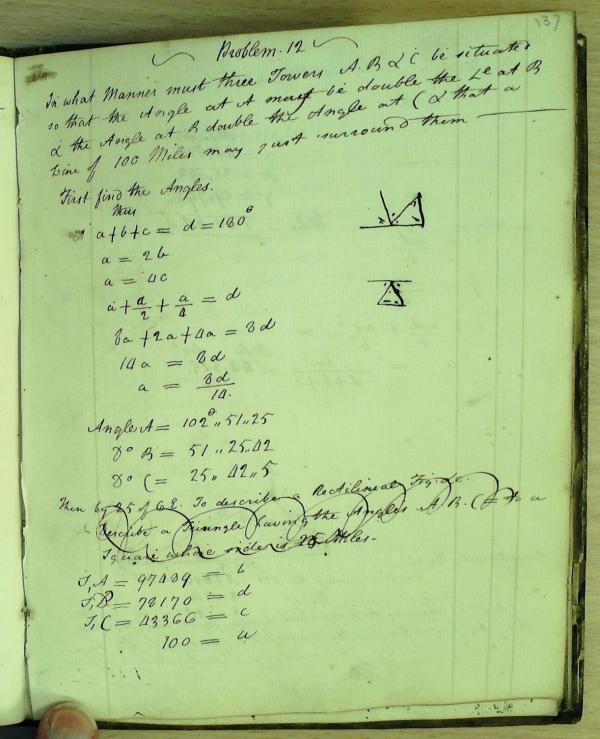 137
Problem. 12
In what Manner must three Towers A. B & C be situated
so that the Angle at A must be double the Le at B
& the Angle at B double the Angle at C & that a
Line of 100 Miles may just surround them
First find the Angles.
thus
a + b + c = d = 180°
a = 2b
a = 4c
a + a/2 + a/4 = d
8a + 2a + 4a = 8d
14a = 8d
a = 8d/14.
Angle A = 102°,, 51,, 25
Do B = 51,, 25,, 42
Do C = 25,, 42,, 5
Then by 25 of 6 E. To describe a Rectilineal Fig: &c.
Describe a Triangle having the Angles A. B. C = to a
Square whose side is 25 Miles.
S,A = 97489 = b
S,B = 78170 = d
S,C = 43366 = c
100 = a